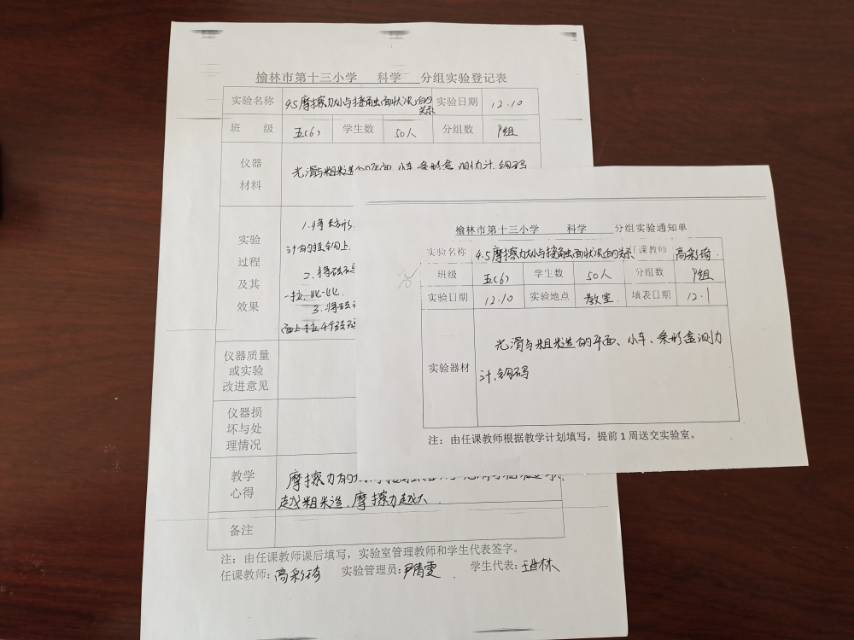 榆林市第十三小学 科学 分组实验登记表
实验名称 4.5摩擦力大小与接触面状况的关系 实验日期 12.10
班 级 五(6) 学生数 50人 分组数 组
仪器材料 光滑与粗糙的平面、小车、条形盒、测力计、钩码
实验过程及其效果
1.将长方形
计的挂钩上.
2.
一拉,比一比.
3.将
面上拉
仪器质量或实验改进意见
仪器损坏与处理情况
教学心得 摩擦力的
越粗糙、摩擦力越大
备注
注:由任课教师课后填写,实验室管理教师和学生代表签字。
任课教师:高彩琦 实验管理员:尹倩雯 学生代表:
榆林市第十三小学 科学 分组实验通知单
实验名称 4.5摩擦力大小与接触面状况的关系 任课教师 高彩琦
班级 五(6) 学生数 50人 分组数 组
实验日期 12.10 实验地点 教室 填表日期 12.1
实验器材 光滑与粗糙的平面、小车、条形盒测力
计、钩码
注:由任课教师根据教学计划填写,提前1周送交实验室。